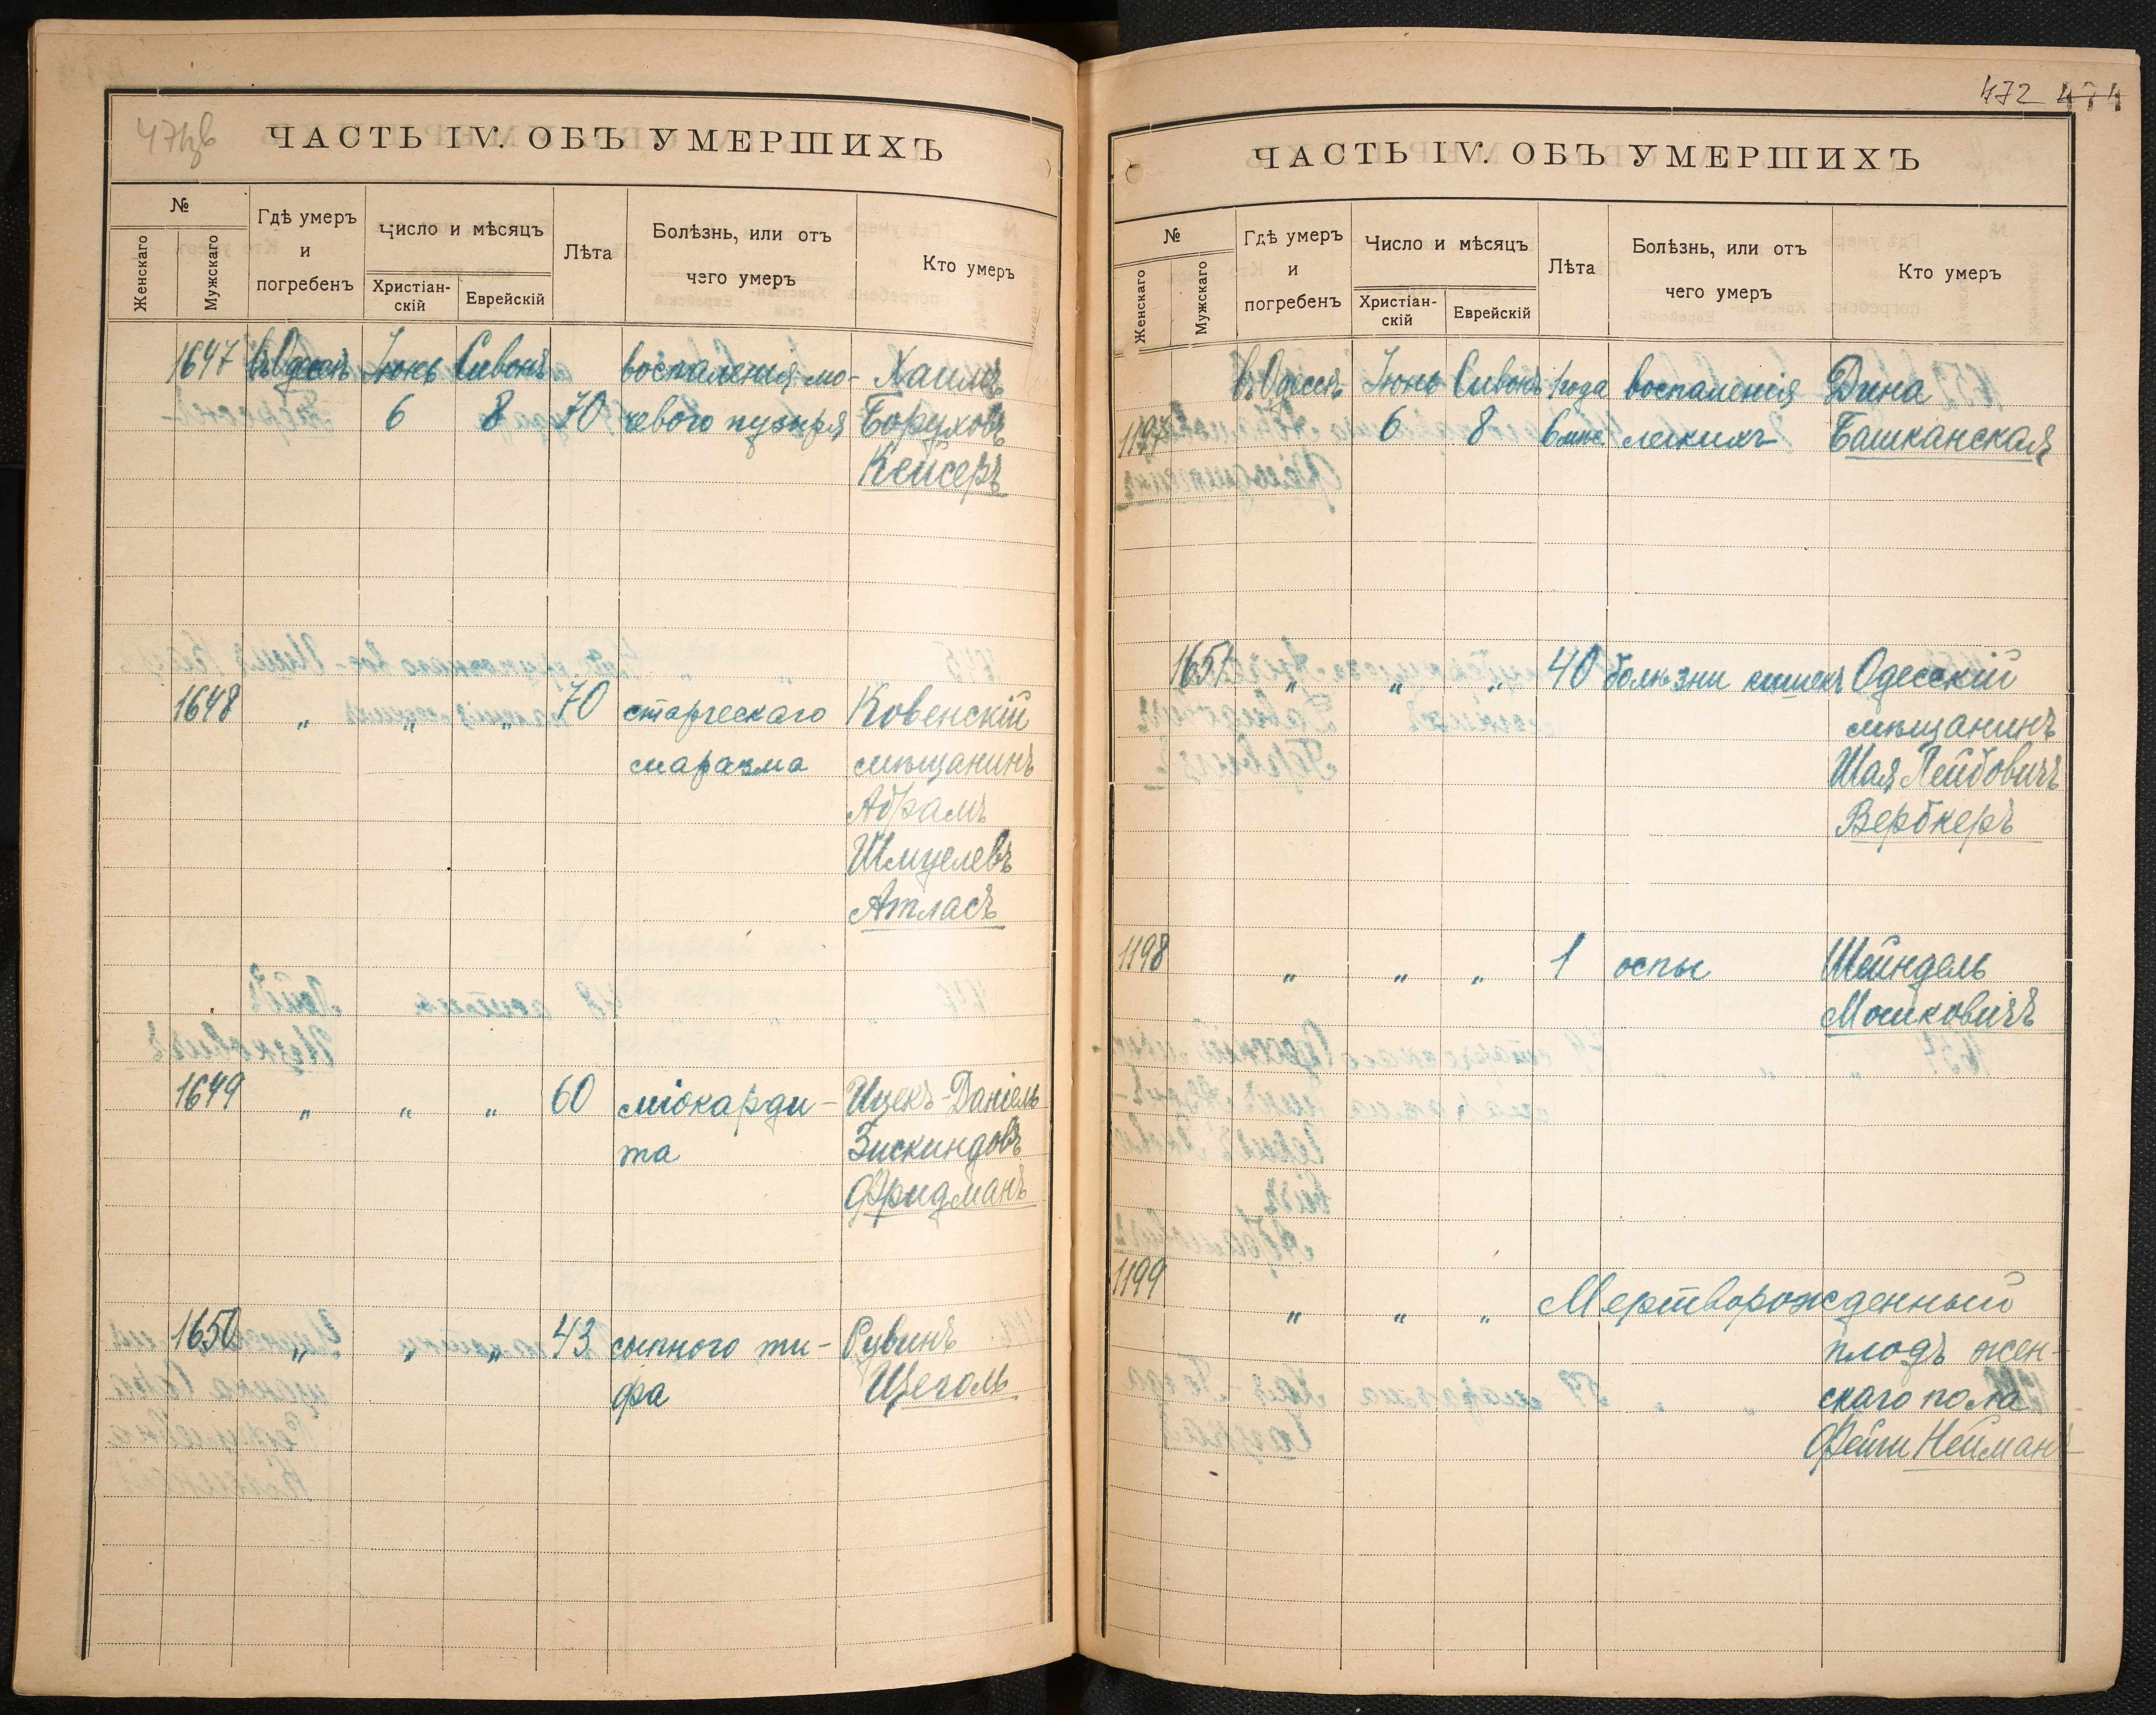 ЧАСТЬ IV. ОБЪ УМЕРШИХЪ
№
Женскаго
Мужскаго
Гдѣ умеръ
и
погребенъ
Число и мѣсяцъ
Христіан-
скій
Еврейскій
Лѣта
Болѣзнь, или отъ
чего умеръ
Кто умеръ
1647 въ Одессѣ Іюнь Сивонъ воспаленія мо- Хаимъ
6 8 70 чевого пузыря Боруховъ
Кейсеръ
1648 " " " 70 старческаго Ковенскій
маразма мѣщанинъ
Абрамъ
Шмулевъ
Атласъ
1649 " " " 60 міокарди- Ицекъ-Даніель
та Зискиндовъ
Фридманъ
1650 " " " 43 сыпного ти- Рувинъ
фа Щеголь
472 474
ЧАСТЬ IV. ОБЪ УМЕРШИХЪ
№
Женскаго
Мужскаго
Гдѣ умеръ
и
погребенъ
Число и мѣсяцъ
Христіан-
скій
Еврейскій
Лѣта
Болѣзнь, или отъ
чего умеръ
Кто умеръ
въ Одессѣ Іюнь Сивонъ 1 года воспаленія Дина
1197 6 8 6 мѣс легкихъ Башканская
1651 " " " 40 болѣзни кишекъ Одесскій
мѣщанинъ
Шая Лейбовичъ
Вербкеръ
1198 " " " 1 оспы Шейндель
Мошковичъ
1199
" " " Мертворожденный
плодъ жен-
скаго пола
Фейги Нейманъ